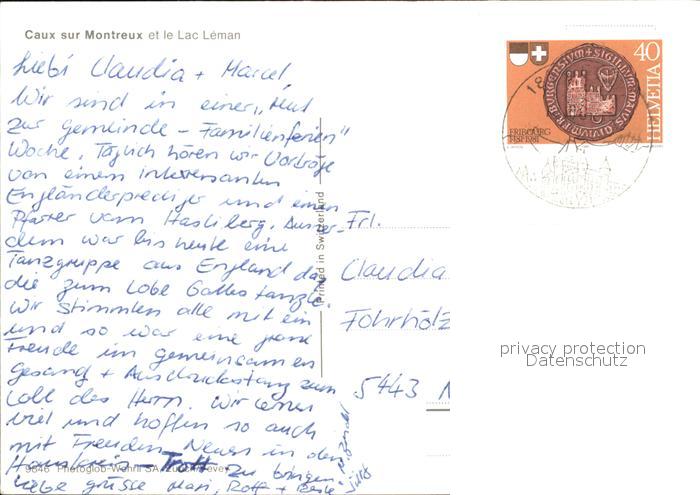 Caux sur Montreux et le Lac Léman
Liebi Claudia + Marcel,
Wir sind in einer „Mut
zur gemeinde - Familienferien"
Woche. Täglich hören wir Vorträge
von einem interessanten
Engländerprediger und einem
Pfarrer vom Hasliberg. Ausser-
dem war bis heute eine
Tanzgruppe aus England da,
die zum Lobe Gottes tanzte.
Wir stimmten alle mit ein
und so war eine grosse
Freude im gemeinsamen
gesang + Ausdruckstanz zum
Lob des Herrn. Wir lernen
viel und hoffen so auch
mit Freuden Neues in den
Hauskreis - Trott zu bringen.
Liebe grüsse
9846 Photoglob-Wehrli SA, Zürich/Vevey
Printed in Switzerland
Frl.
Claudia
Fohrhölz
5443 N
HELVETIA
40
FRIBOURG
1481-1981
18
privacy protection
Datenschutz